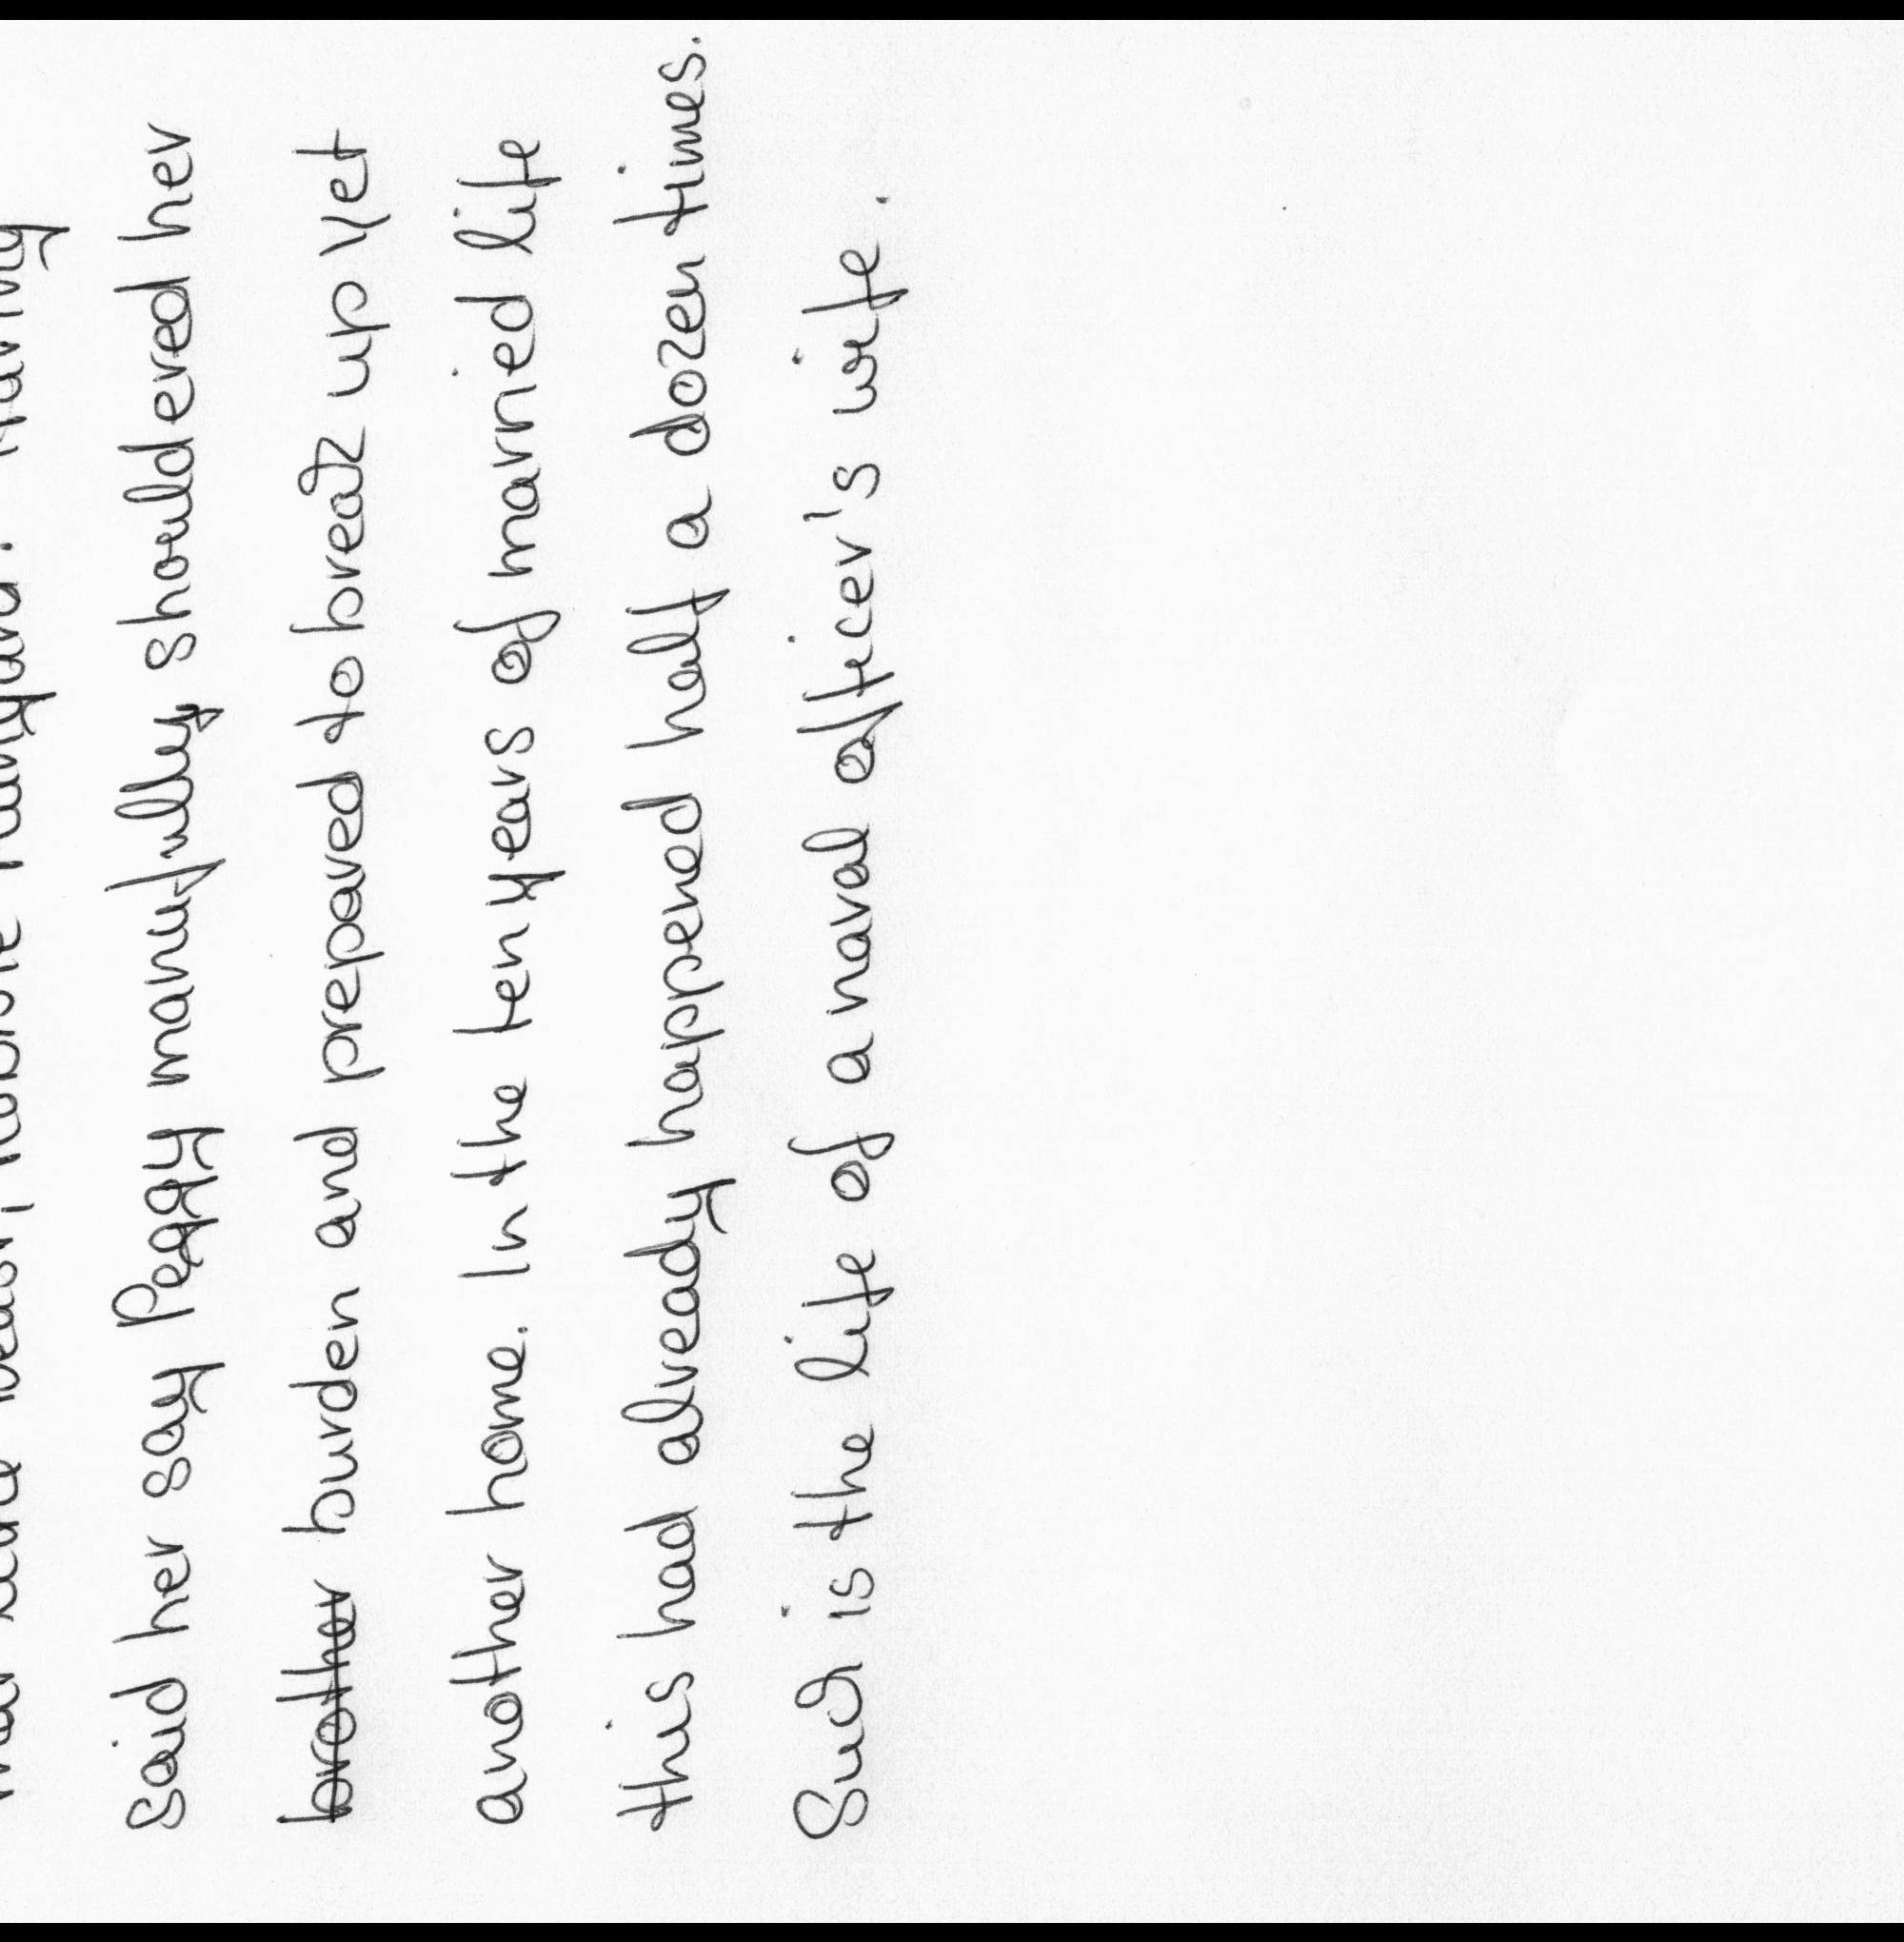 Having
said her say Peggy manufully shouldered her
~~brother~~ burden and prepared to break up yet
another home. In the ten years of married life
this had already happened half a dozen times.
Such is the life of a naval officer's wife.